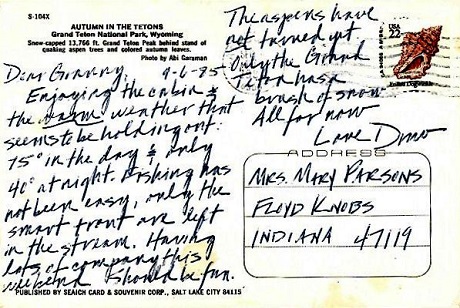 S-104X
AUTUMN IN THE TETONS
Grand Teton National Park, Wyoming
Snow-capped 13,766 ft. Grand Teton Peak behind stand of
quaking aspen trees and colored autumn leaves.
Photo by Abi Garaman
Dear Granny, 9-6-85
Enjoying the cabin &
the warm weather that
seems to be holding out.
75° in the day & only
40° at night. Fishing has
not been easy, only the
smart trout are left
in the stream. Having
lots of company this
weekend should be fun.
The aspens have
not turned yet.
Only the Grand
Teton has a
brush of snow.
All for now
Love Dino
USA
22
Frilled Dogwinkle
ADDRESS
MRS. MARY PARSONS
FLOYD KNOBS
INDIANA 47119
PUBLISHED BY SEAICH CARD & SOUVENIR CORP., SALT LAKE CITY 84115